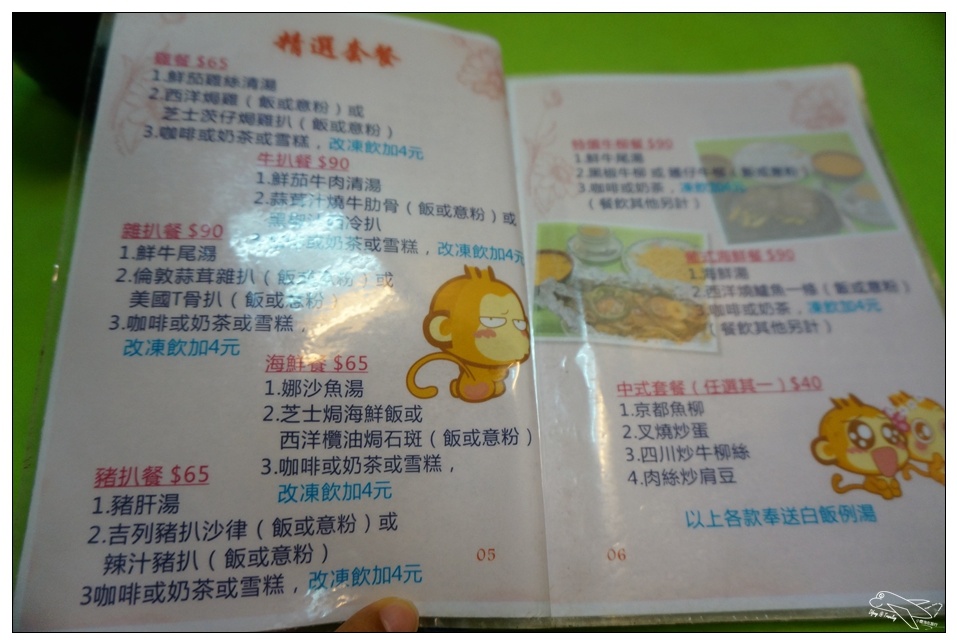 精選套餐
雞餐 $65
1.鮮茄雞絲清湯
2.西洋焗雞（飯或意粉）或
芝士茨仔焗雞扒（飯或意粉）
3.咖啡或奶茶或雪糕，改凍飲加4元
牛扒餐 $90
1.鮮茄牛肉清湯
2.蒜茸汁燒牛肋骨（飯或意粉）或
冷扒
或奶茶或雪糕，改凍飲加4元
雜扒餐 $90
1.鮮牛尾湯
2.倫敦蒜茸雜扒（飯或意粉）或
美國T骨扒（飯或意粉）
3.咖啡或奶茶或雪糕，
改凍飲加4元
海鮮餐 $65
1.娜沙魚湯
2.芝士焗海鮮飯或
西洋欖油焗石斑（飯或意粉）
3.咖啡或奶茶或雪糕，
改凍飲加4元
豬扒餐 $65
1.豬肝湯
2.吉列豬扒沙律（飯或意粉）或
辣汁豬扒（飯或意粉）
3咖啡或奶茶或雪糕，改凍飲加4元
05
牛柳餐 $90
1.鮮牛尾湯
2.黑椒牛柳 或 牛柳（飯或意粉）
3.咖啡或奶茶，凍飲加4元
（餐飲其他另計）
葡式海鮮餐 $90
1.海鮮湯
2.西洋燒鱸魚一條（飯或意粉）
3.咖啡或奶茶，凍飲加4元
（餐飲其他另計）
中式套餐（任選其一）$40
1.京都魚柳
2.叉燒炒蛋
3.四川炒牛柳絲
4.肉絲炒肩豆
以上各款奉送白飯例湯
06